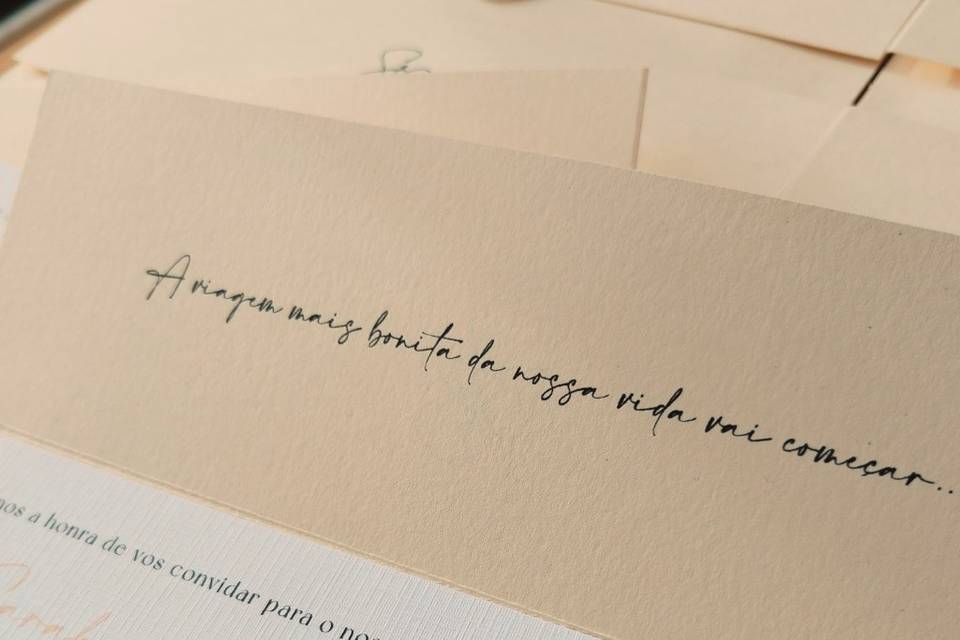 A viagem mais bonita da nossa vida vai começar..
a honra de vos convidar para o
Sarah